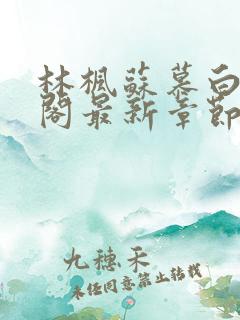 林楓蘇慕白
閣最新章節
九穗禾
未经同意禁止转载